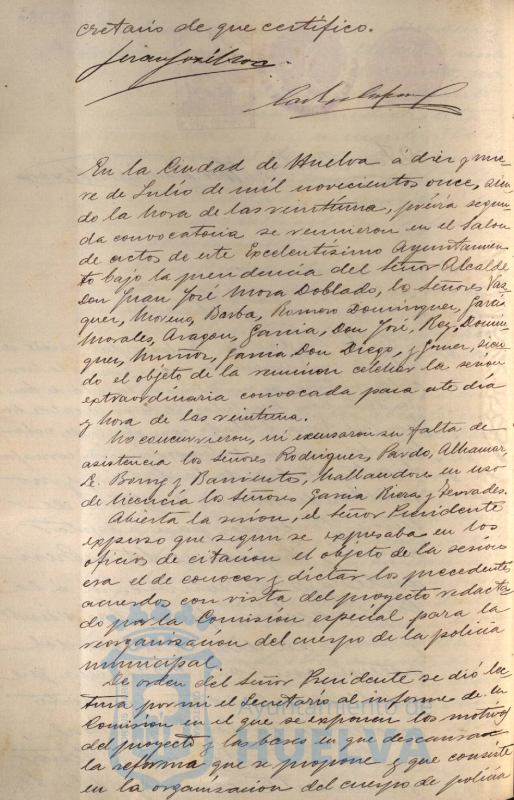 cretario de que certifico.
En la Ciudad de Huelva á diez y nue-
ve de Julio de mil novecientos once, sien-
do la hora de las veintiuna, prévia segun-
da convocatoria se reunieron en el Salon
de actos de este Excelentísimo Ayuntamien-
to bajo la presidencia del Señor Alcalde
Don Juan José Mora Doblado, los Señores Vaz-
quez, Moreno, Barba, Romero Dominguez, Garcia
Morales, Aragon, Garcia, Don José, Rey, Domin-
guez, Muñoz, Garcia Don Diego, y Gomez, sien-
do el objeto de la reunion celebrar la sesión
extraordinaria convocada para este dia
y hora de las veintiuna.
No concurrieron, ni excusaron su falta de
asistencia los Señores Rodriguez, Pardo, Alhamar,
y Barrientos, hallandose en uso
de licencia los Señores Garcia y
Abierta la sesión, el Señor Presidente
expuso que segun se expresaba en los
oficios de citación el objeto de la sesión
era el de conocer y dictar los precedentes
acuerdos con vista del proyecto redacta-
do por la Comisión especial para la
reorganización del cuerpo de la policia
municipal.
De orden del Señor Presidente se dió lec-
tura por mi el Secretario al informe de la
Comisión en el que se exponen los motivos
del proyecto y las bases en que descansa
la reforma que se propone y que consiste
en la organización del cuerpo de policia
Ayuntamiento de
HUELVA